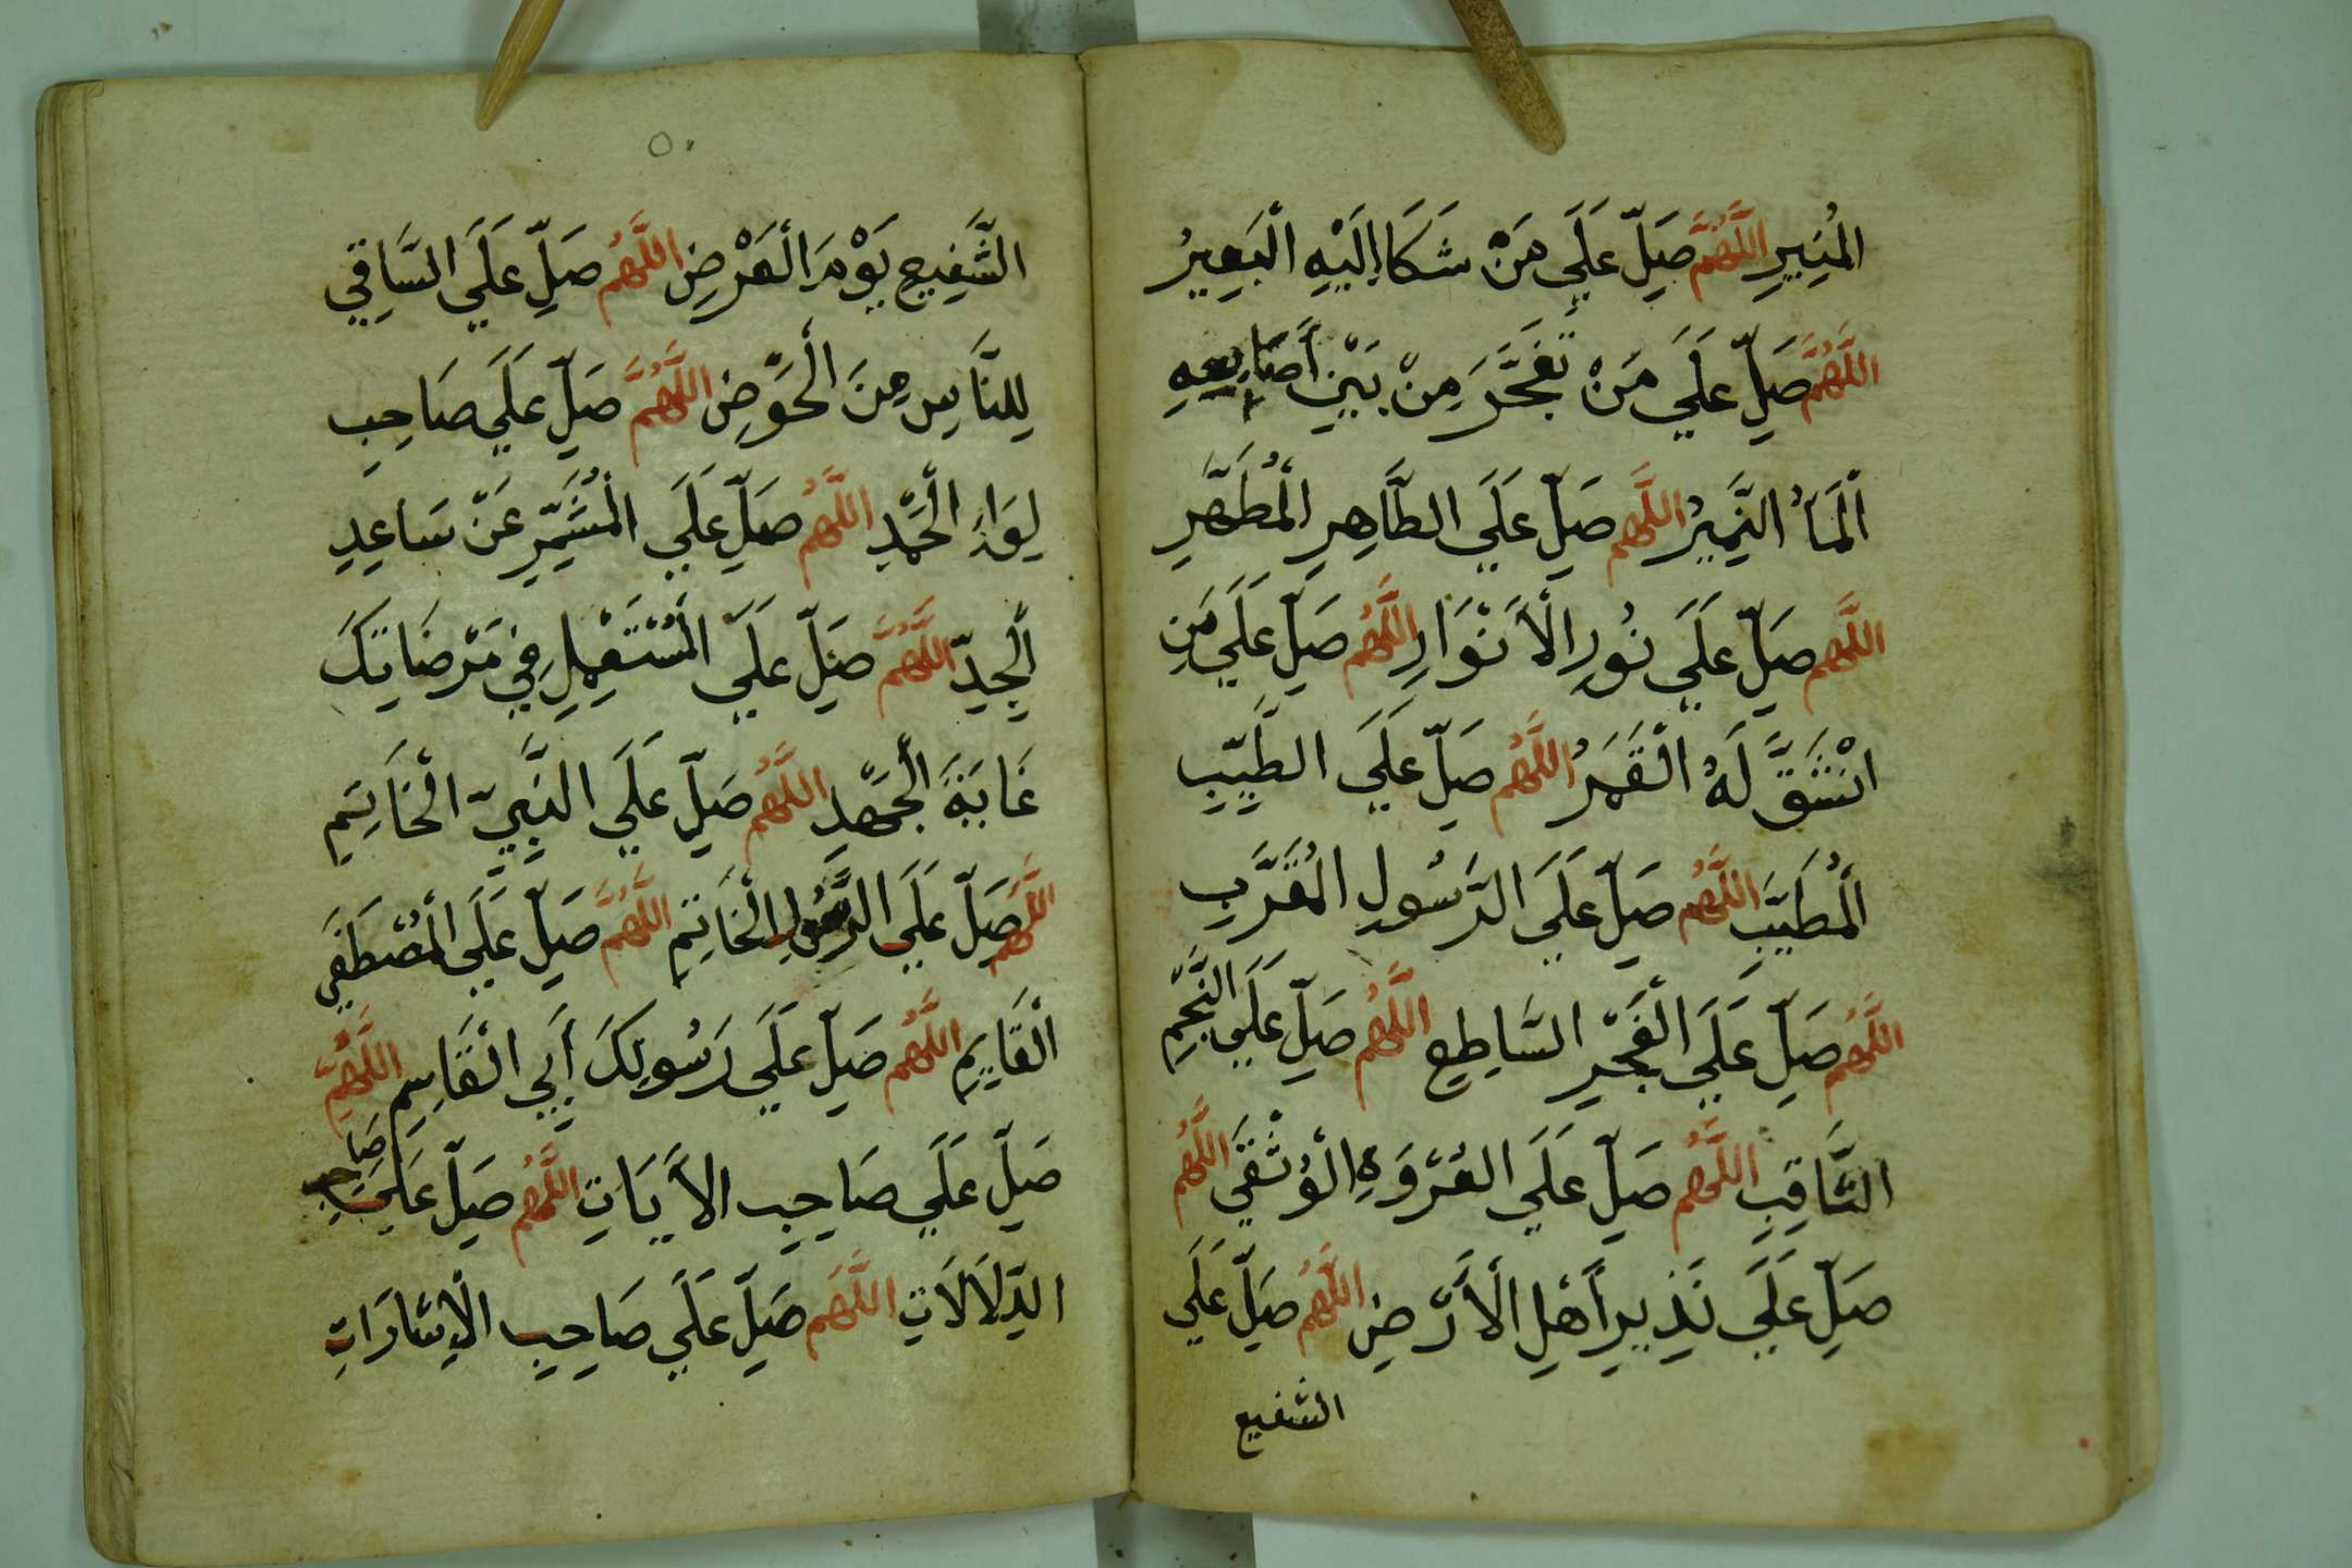 الْمُنِيرِ اللَّهُمَّ صَلِّ عَلَي مَنْ شَكَا إِلَيْهِ الْبَعِيرُ
اللَّهُمَّ صَلِّ عَلَي مَنْ تَفَجَّرَ مِنْ بَيْنِ أَصَابِعِهِ
الْمَآءُ النَّمِيرُ اللَّهُمَّ صَلِّ عَلَي الطَّاهِرِ الْمُطَهَّرِ
اللَّهُمَّ صَلِّ عَلَي نُورِ الْأَنْوَارِ اللَّهُمَّ صَلِّ عَلَي مَنِ
انْشَقَّ لَهُ الْقَمَرُ اللَّهُمَّ صَلِّ عَلَي الطَّيِّبِ
الْمُطَيَّبِ اللَّهُمَّ صَلِّ عَلَي الرَّسُولِ الْمُقَرَّبِ
اللَّهُمَّ صَلِّ عَلَي الْفَجْرِ السَّاطِعِ اللَّهُمَّ صَلِّ عَلَي النَّجْمِ
الثَّاقِبِ اللَّهُمَّ صَلِّ عَلَي الْعُرْوَةِ الْوُثْقَي اللَّهُمَّ
صَلِّ عَلَي نَذِيرِ أَهْلِ الْأَرْضِ اللَّهُمَّ صَلِّ عَلَي
الشفيع
٥٠
الشَّفِيعِ يَوْمَ الْعَرْضِ اللَّهُمَّ صَلِّ عَلَي السَّاقِي
لِلنَّاسِ مِنَ الْحَوْضِ اللَّهُمَّ صَلِّ عَلَي صَاحِبِ
لِوَاءِ الْحَمْدِ اللَّهُمَّ صَلِّ عَلَي الْمُشَمِّرِ عَنْ سَاعِدِ
الْجِدِّ اللَّهُمَّ صَلِّ عَلَي الْمُسْتَعْمِلِ فِي مَرْضَاتِكَ
غَايَةَ الْجَهْدِ اللَّهُمَّ صَلِّ عَلَي النَّبِيِّ الْخَاتِمِ
اللَّهُمَّ صَلِّ عَلَي الرَّسُولِ الْخَاتِمِ اللَّهُمَّ صَلِّ عَلَي الْمُصْطَفَي
الْقَايِمِ اللَّهُمَّ صَلِّ عَلَي رَسُولِكَ أَبِي الْقَاسِمِ اللَّهُمَّ
صَلِّ عَلَي صَاحِبِ الْأَيَاتِ اللَّهُمَّ صَلِّ عَلَي صَاحِبِ
الدَّلَالَاتِ اللَّهُمَّ صَلِّ عَلَي صَاحِبِ الْإِشَارَاتِ